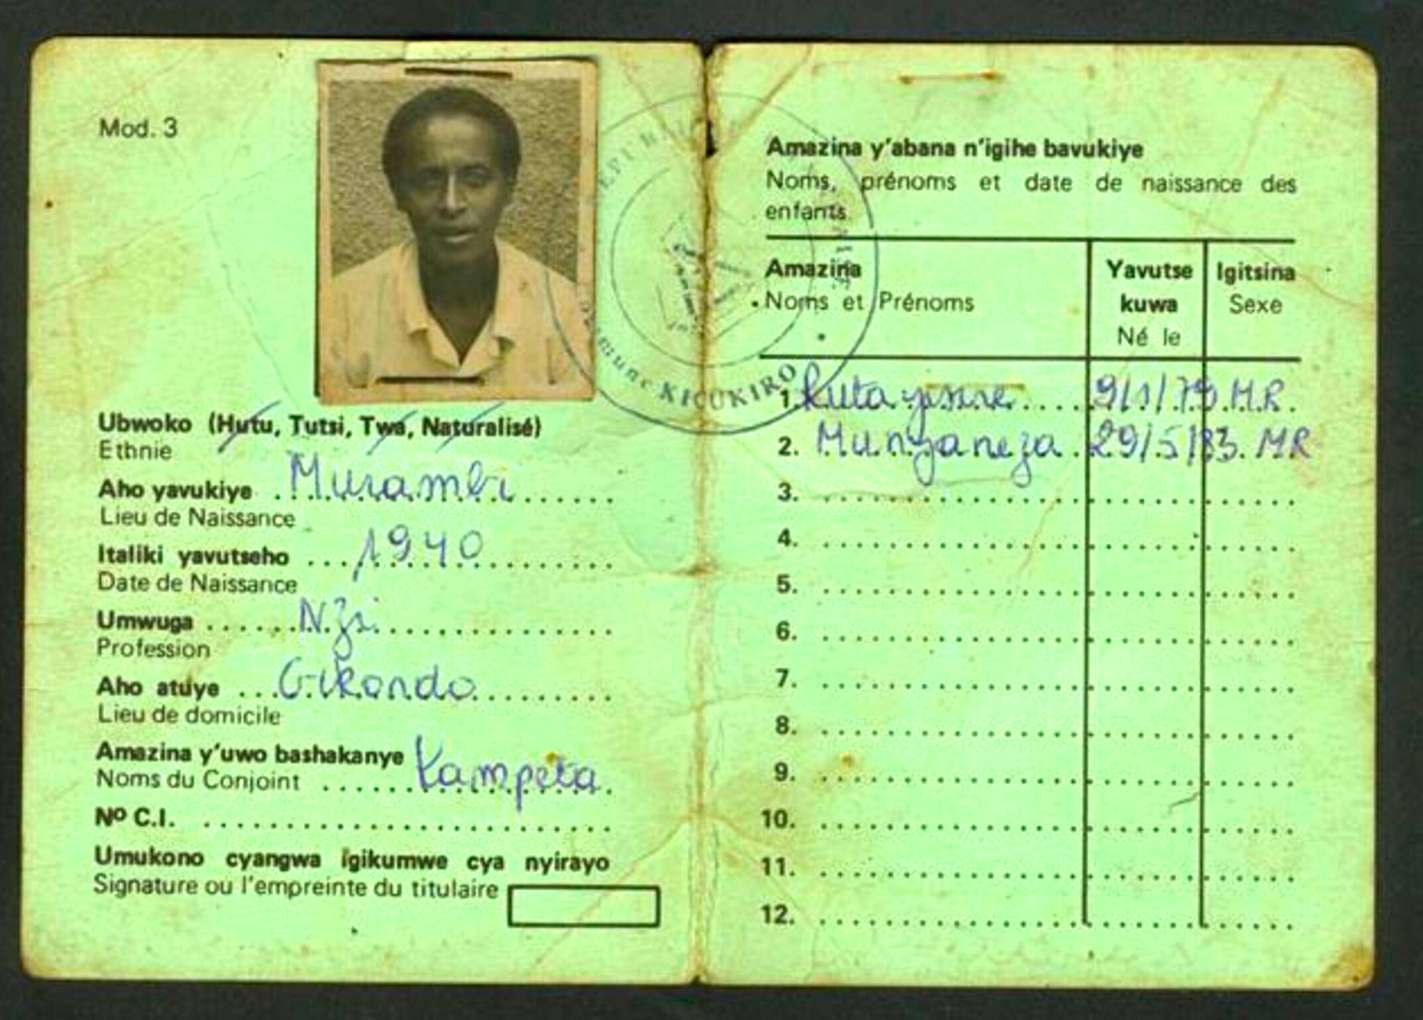 Mod. 3
Ubwoko (Hutu, Tutsi, Twa, Naturalisé)
Ethnie
Aho yavukiye . Murambi
Lieu de Naissance
Italiki yavutseho ... 1940
Date de Naissance
Umwuga ...... NZi
Profession
Aho atuye ... Gikondo
Lieu de domicile
Amazina y'uwo bashakanye
Noms du Conjoint ...... Kampeta
Nº C.I. ........................
Umukono cyangwa igikumwe cya nyirayo
Signature ou l'empreinte du titulaire
Commune KICUKIRO
Amazina y'abana n'igihe bavukiye
Noms, prénoms et date de naissance des
enfants.
Amazina Yavutse Igitsina
Noms et Prénoms kuwa Sexe
Né le
1. 9/1/79 MR
2. Munyaneza 29/5/83 MR
3.
4.
5.
6.
7.
8.
9.
10.
11.
12.